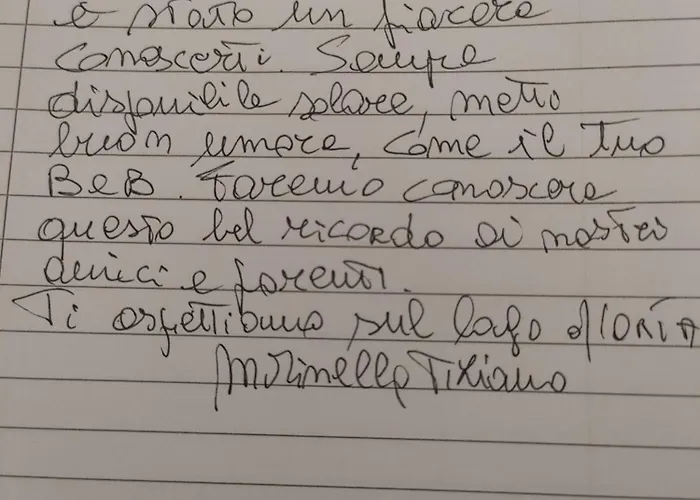 è stato un piacere
conoscerti. Sempre
disponibile solare, metti
buon umore, come il tuo
BeB. Faremo conoscere
questo bel ricordo ai nostri
amici e parenti.
Ti aspettiamo sul lago d'ORTA
Tiziano